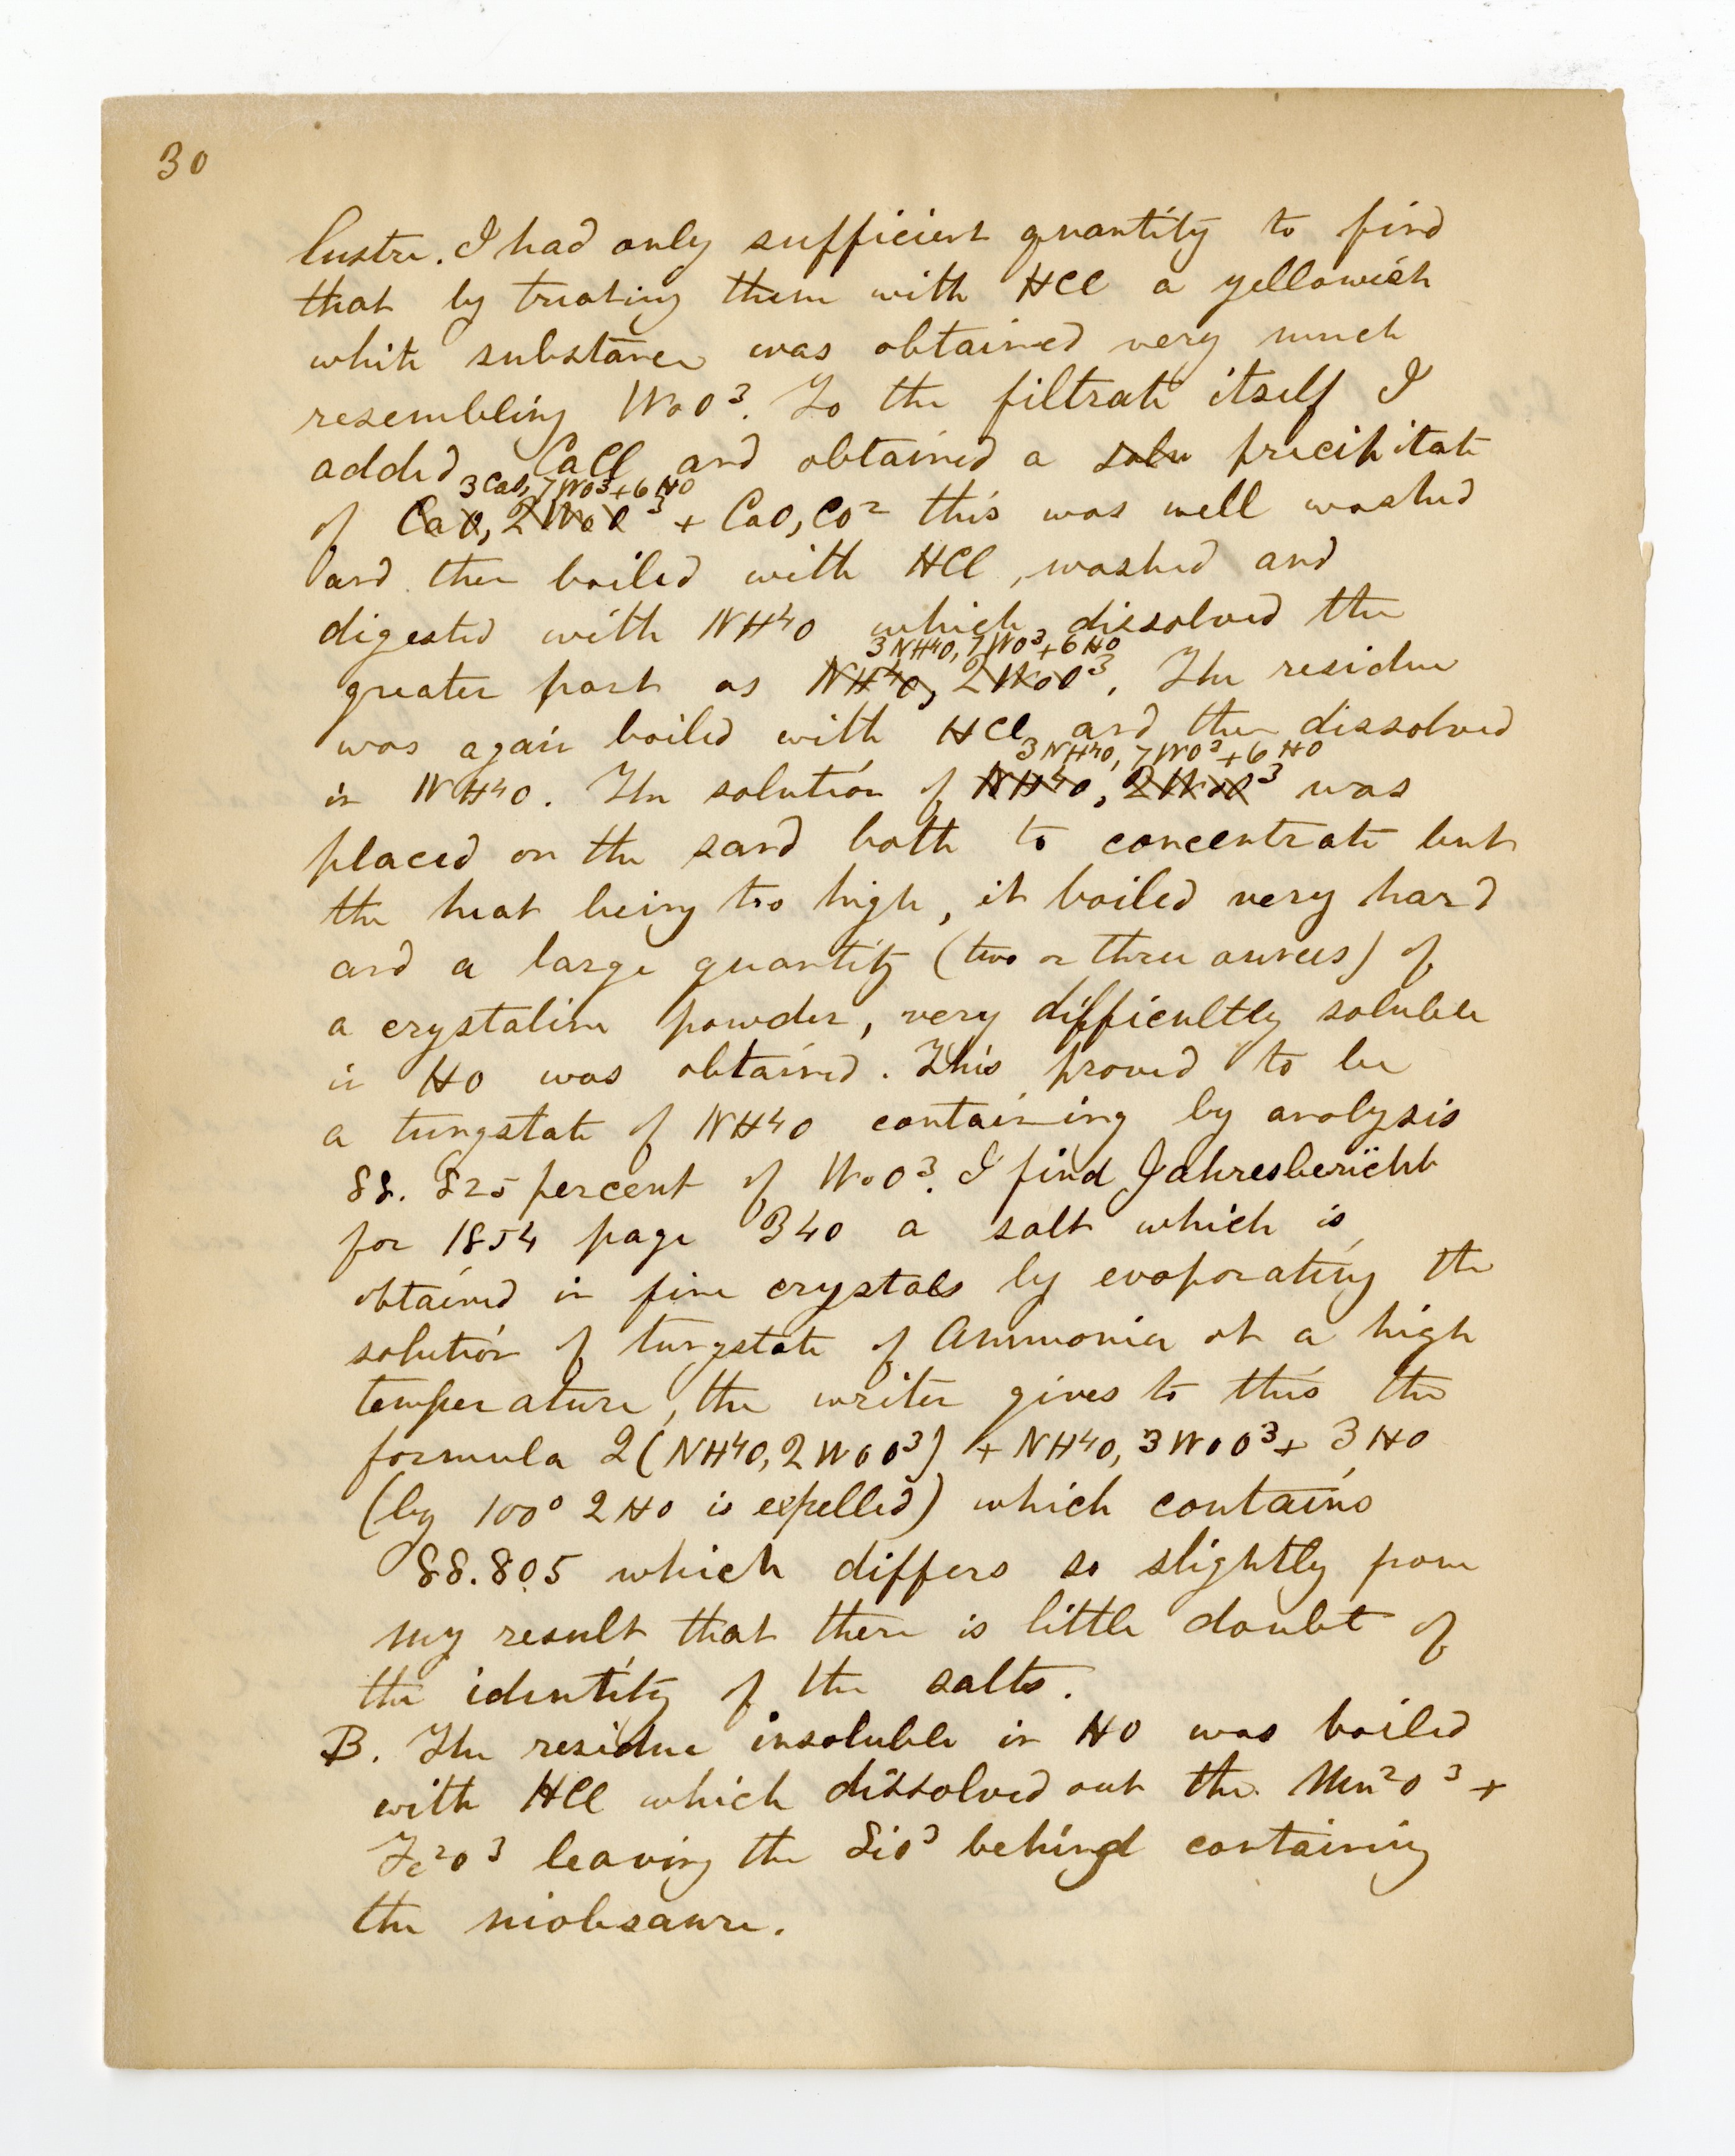 30
lustre. I had only sufficient quantity to find
that by treating them with HCl a yellowish
white substance was obtained very much
resembling WoO³. To the filtrate itself I
added CaCl and obtained a solu precipitate
3 CaO, 7 WO³ + 6 HO
of CaO, 2 WoO³ + CaO, CO² this was well washed
and then boiled with HCl, washed and
digested with NH⁴O which dissolved the
3 NH⁴O, 7 WO³ + 6 HO
greater part as NH⁴O, 2 WoO³. The residue
was again boiled with HCl and then dissolved
3 NH⁴O, 7 WO³ + 6 HO
in NH⁴O. The solution of NH⁴O, 2 WoO³ was
placed on the sand bath to concentrate but
the heat being too high, it boiled very hard
and a large quantity (two or three ounces) of
a crystaline powder, very difficultly soluble
in HO was obtained. This proved to be
a tungstate of NH⁴O containing by analysis
88. 825 percent of WoO³. I find Jahresbericht
for 1854 page 340 a salt which is
obtained in fine crystals by evaporating the
solution of tungstate of Ammonia at a high
temperature, the writer gives to this the
formula 2(NH⁴O, 2 WoO³) + NH⁴O, 3 WoO³ + 3 HO
(by 100° 2 HO is expelled) which contains
88.805 which differs so slightly from
my result that there is little doubt of
the identity of the salts.
B. The residue insoluble in HO was boiled
with HCl which dissolved out the Mn²O³ +
Fe²O³ leaving the SiO³ behind containing
the niobsaure.